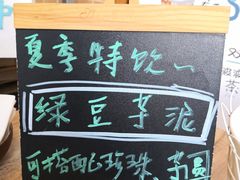 夏季特饮~
绿豆芋泥
可搭配珍珠、芋圆